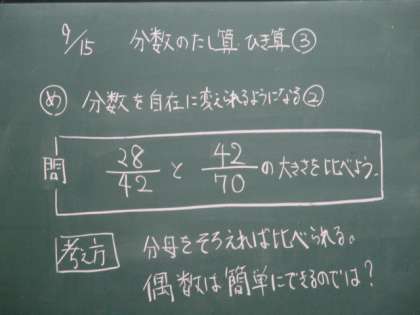 9/15 分数のたし算 ひき算③
め 分数を自在に変えられるようになる②
問 28/42 と 42/70 の大きさを比べよう。
考え方 分母をそろえれば比べられる。
偶数は簡単にできるのでは？